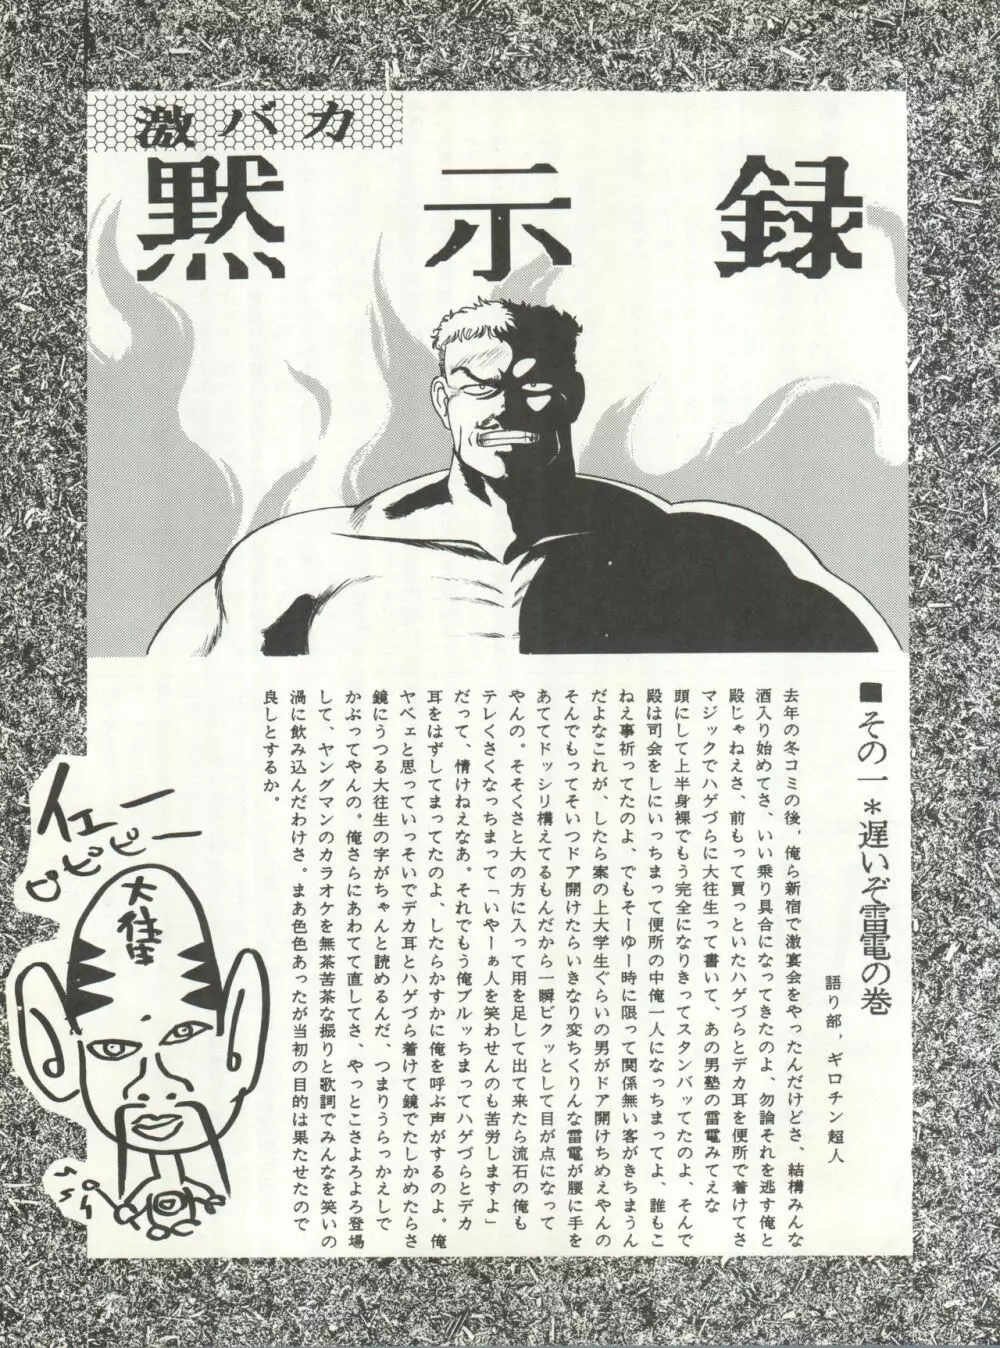 激バカ
黙示録
■その一＊遅いぞ雷電の巻
語り部，ギロチン超人
去年の冬コミの後，俺ら新宿で激宴会をやったんだけどさ、結構みんな
酒入り始めてさ、いい乗り具合になってきたのよ、勿論それを逃す俺と
殿じゃねえさ、前もって買っといたハゲづらとデカ耳を便所で着けてさ
マジックでハゲづらに大往生って書いて、あの男塾の雷電みてえな
頭にして上半身裸でもう完全になりきってスタンバッてたのよ、そんで
殿は司会をしにいっちまって便所の中俺一人になっちまってよ、誰もこ
ねえ事祈ってたのよ、でもそーゆー時に限って関係無い客がきちまうん
だよなこれが、したら案の上大学生ぐらいの男がドア開けちめえやんの
そんでもってそいつドア開けたらいきなり変ちくりんな雷電が腰に手を
あててドッシリ構えてるもんだから一瞬ビクッとして目が点になって
やんの。そそくさと大の方に入って用を足して出て来たら流石の俺も
テレくさくなっちまって「いやーぁ人を笑わせんのも苦労しますよ」
だって、情けねえなあ。それでもう俺ブルッちまってハゲづらとデカ
耳をはずしてまってたのよ、したらかすかに俺を呼ぶ声がするのよ。俺
ヤベェと思っていっそいでデカ耳とハゲづら着けて鏡でたしかめたらさ
鏡にうつる大往生の字がちゃんと読めるんだ、つまりうらっかえしで
かぶってやんの。俺さらにあわてて直してさ、やっとこさよろよろ登場
して、ヤングマンのカラオケを無茶苦茶な振りと歌詞でみんなを笑いの
渦に飲み込んだわけさ。まあ色色あったが当初の目的は果たせたので
良しとするか。
イエー
ロピピー
大往生